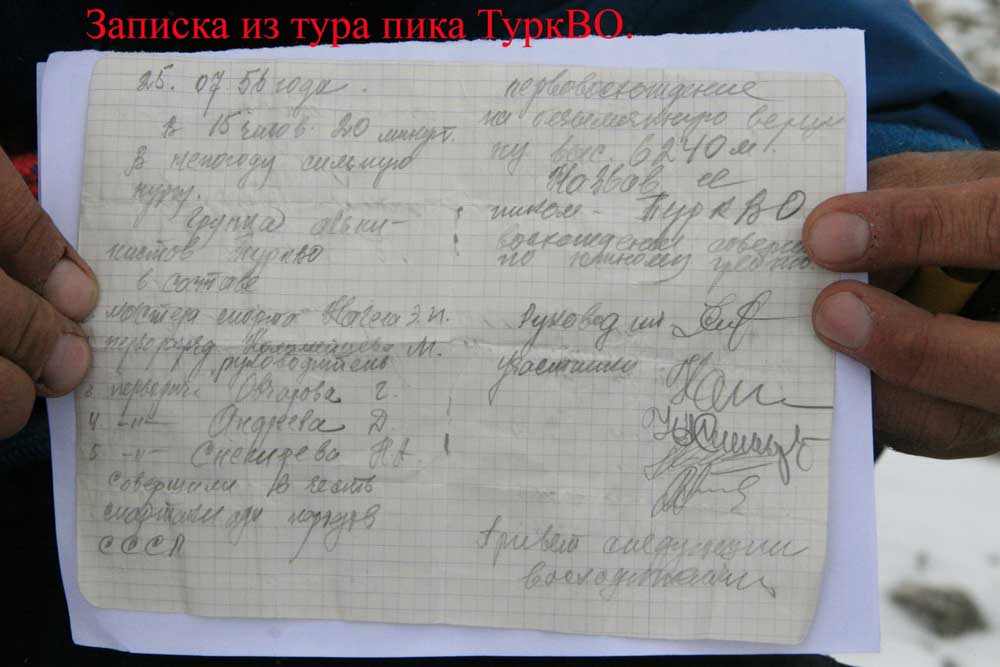 Записка из тура пика ТуркВО.
25. 07 56 года.
в 15 часов 20 минут.
в непогоду сильную
пургу.
Группа альпи-
нистов ТуркВО
в составе
мастера спорта Нагела Э.И.
перворазряд. Коломейцева М.
руководитель
3 перворазр. Овчарова Г.
4 -"- Андреева Д.
5 -"- 
совершили в честь
спартакиады народов
СССР
первовосхождение
на безымянную верши
ну выс. 6240 м.
Назвав ее
пиком - ТуркВО
восхождения соверш
по южному гребню
Руковод
участники
Привет следующим
восходителям